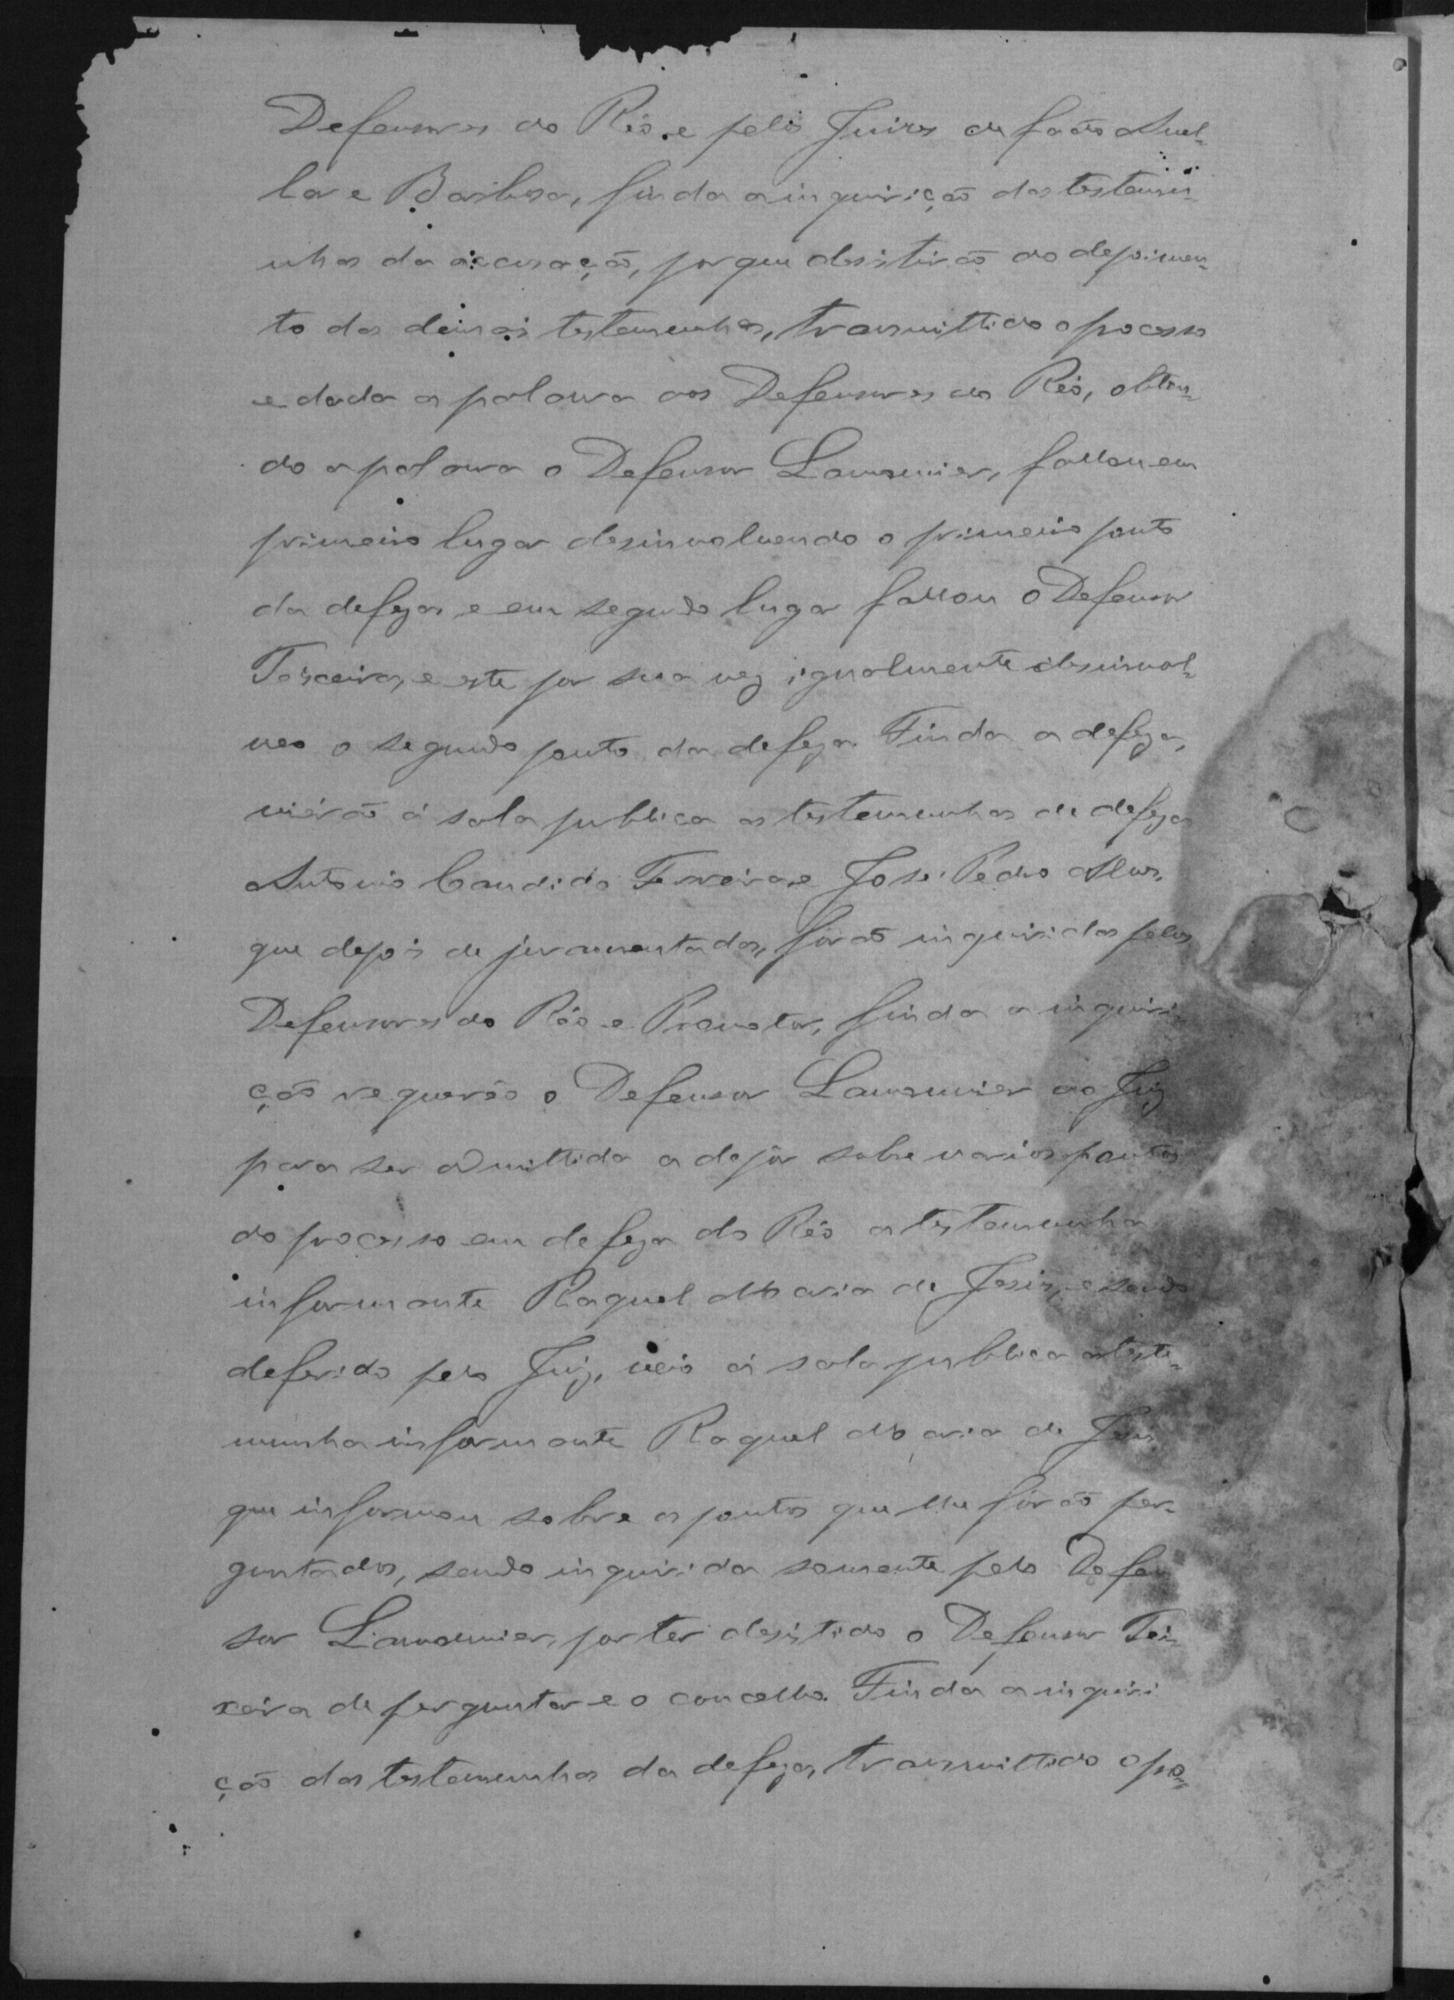 Defensores do Réo, e pelos Juizes de facto Avel-
lar e Barbosa, finda a inquirição das testemu-
nhas da accusação, porque desistirão do depoimen-
to das demais testemunhas, transmittido o processo
e dada a palavra aos Defensores do Réo, obten-
do a palavra o Defensor Lamounier, fallou em
primeiro lugar desinvolvendo o primeiro ponto
da defeza, e em segundo lugar fallou o Defensor
Teixeira, e este por sua vez igualmente desinvol-
veo o segundo ponto da defeza. Finda a defeza,
vierão á sala publica as testemunhas de defeza
Antonio Candido Ferreira, e José Pedro
que depois de juramentadas, forão inquiridas pelos
Defensores do Réo e Promotor, finda a inquiri-
ção requereo o Defensor Lamounier ao Juiz
para ser admittida a depôr sobre varios pontos
do processo em defeza do Réo a testemunha
informante Raquel Maria de Jesus, e sendo
deferido pelo Juiz, veio á sala publica a teste-
munha informante Raquel Maria de Jesus
que informou sobre os pontos que lhe forão per-
guntados, sendo inquirida somente pelo Defen
sor Lamounier, por ter desistido o Defensor Tei-
xeira de perguntar e o concelho. Finda a inquiri
ção das testemunhas da defeza, transmittido o pro-